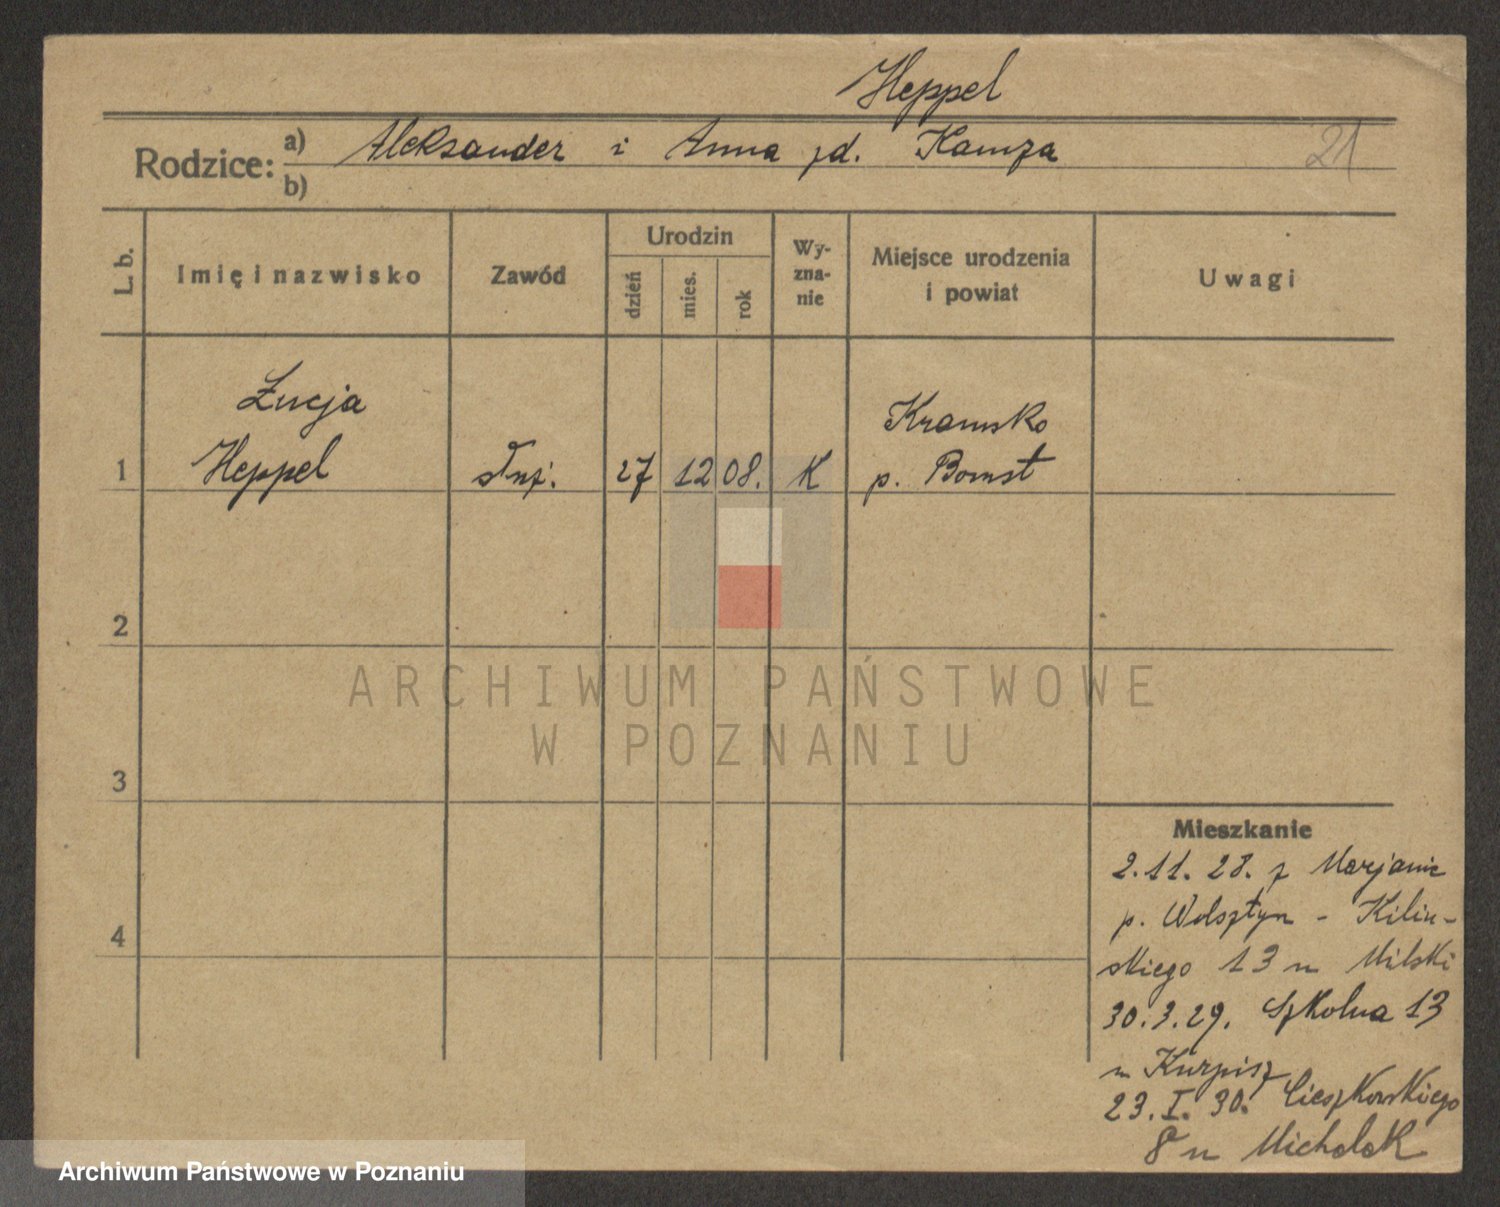 Heppel
Rodzice: a) Aleksander i Anna zd. Kamza
21
b)
L. b.
Imię i nazwisko
Zawód
Urodzin
dzień
mies.
rok
Wy-
zna-
nie
Miejsce urodzenia
i powiat
Uwagi
Łucja
Heppel
1
służ.
27
12
08.
K
Kramsko
p. Bomst
2
3
4
Mieszkanie
2.11.28. z Marjanie
p. Wolsztyn - Kiliń-
skiego 13 u Milski
30.3.29. Szkolna 13
u Kurpisz
23.I.30. Cieszkowskiego
8 u Michalak
ARCHIWUM PAŃSTWOWE
W POZNANIU
Archiwum Państwowe w Poznaniu